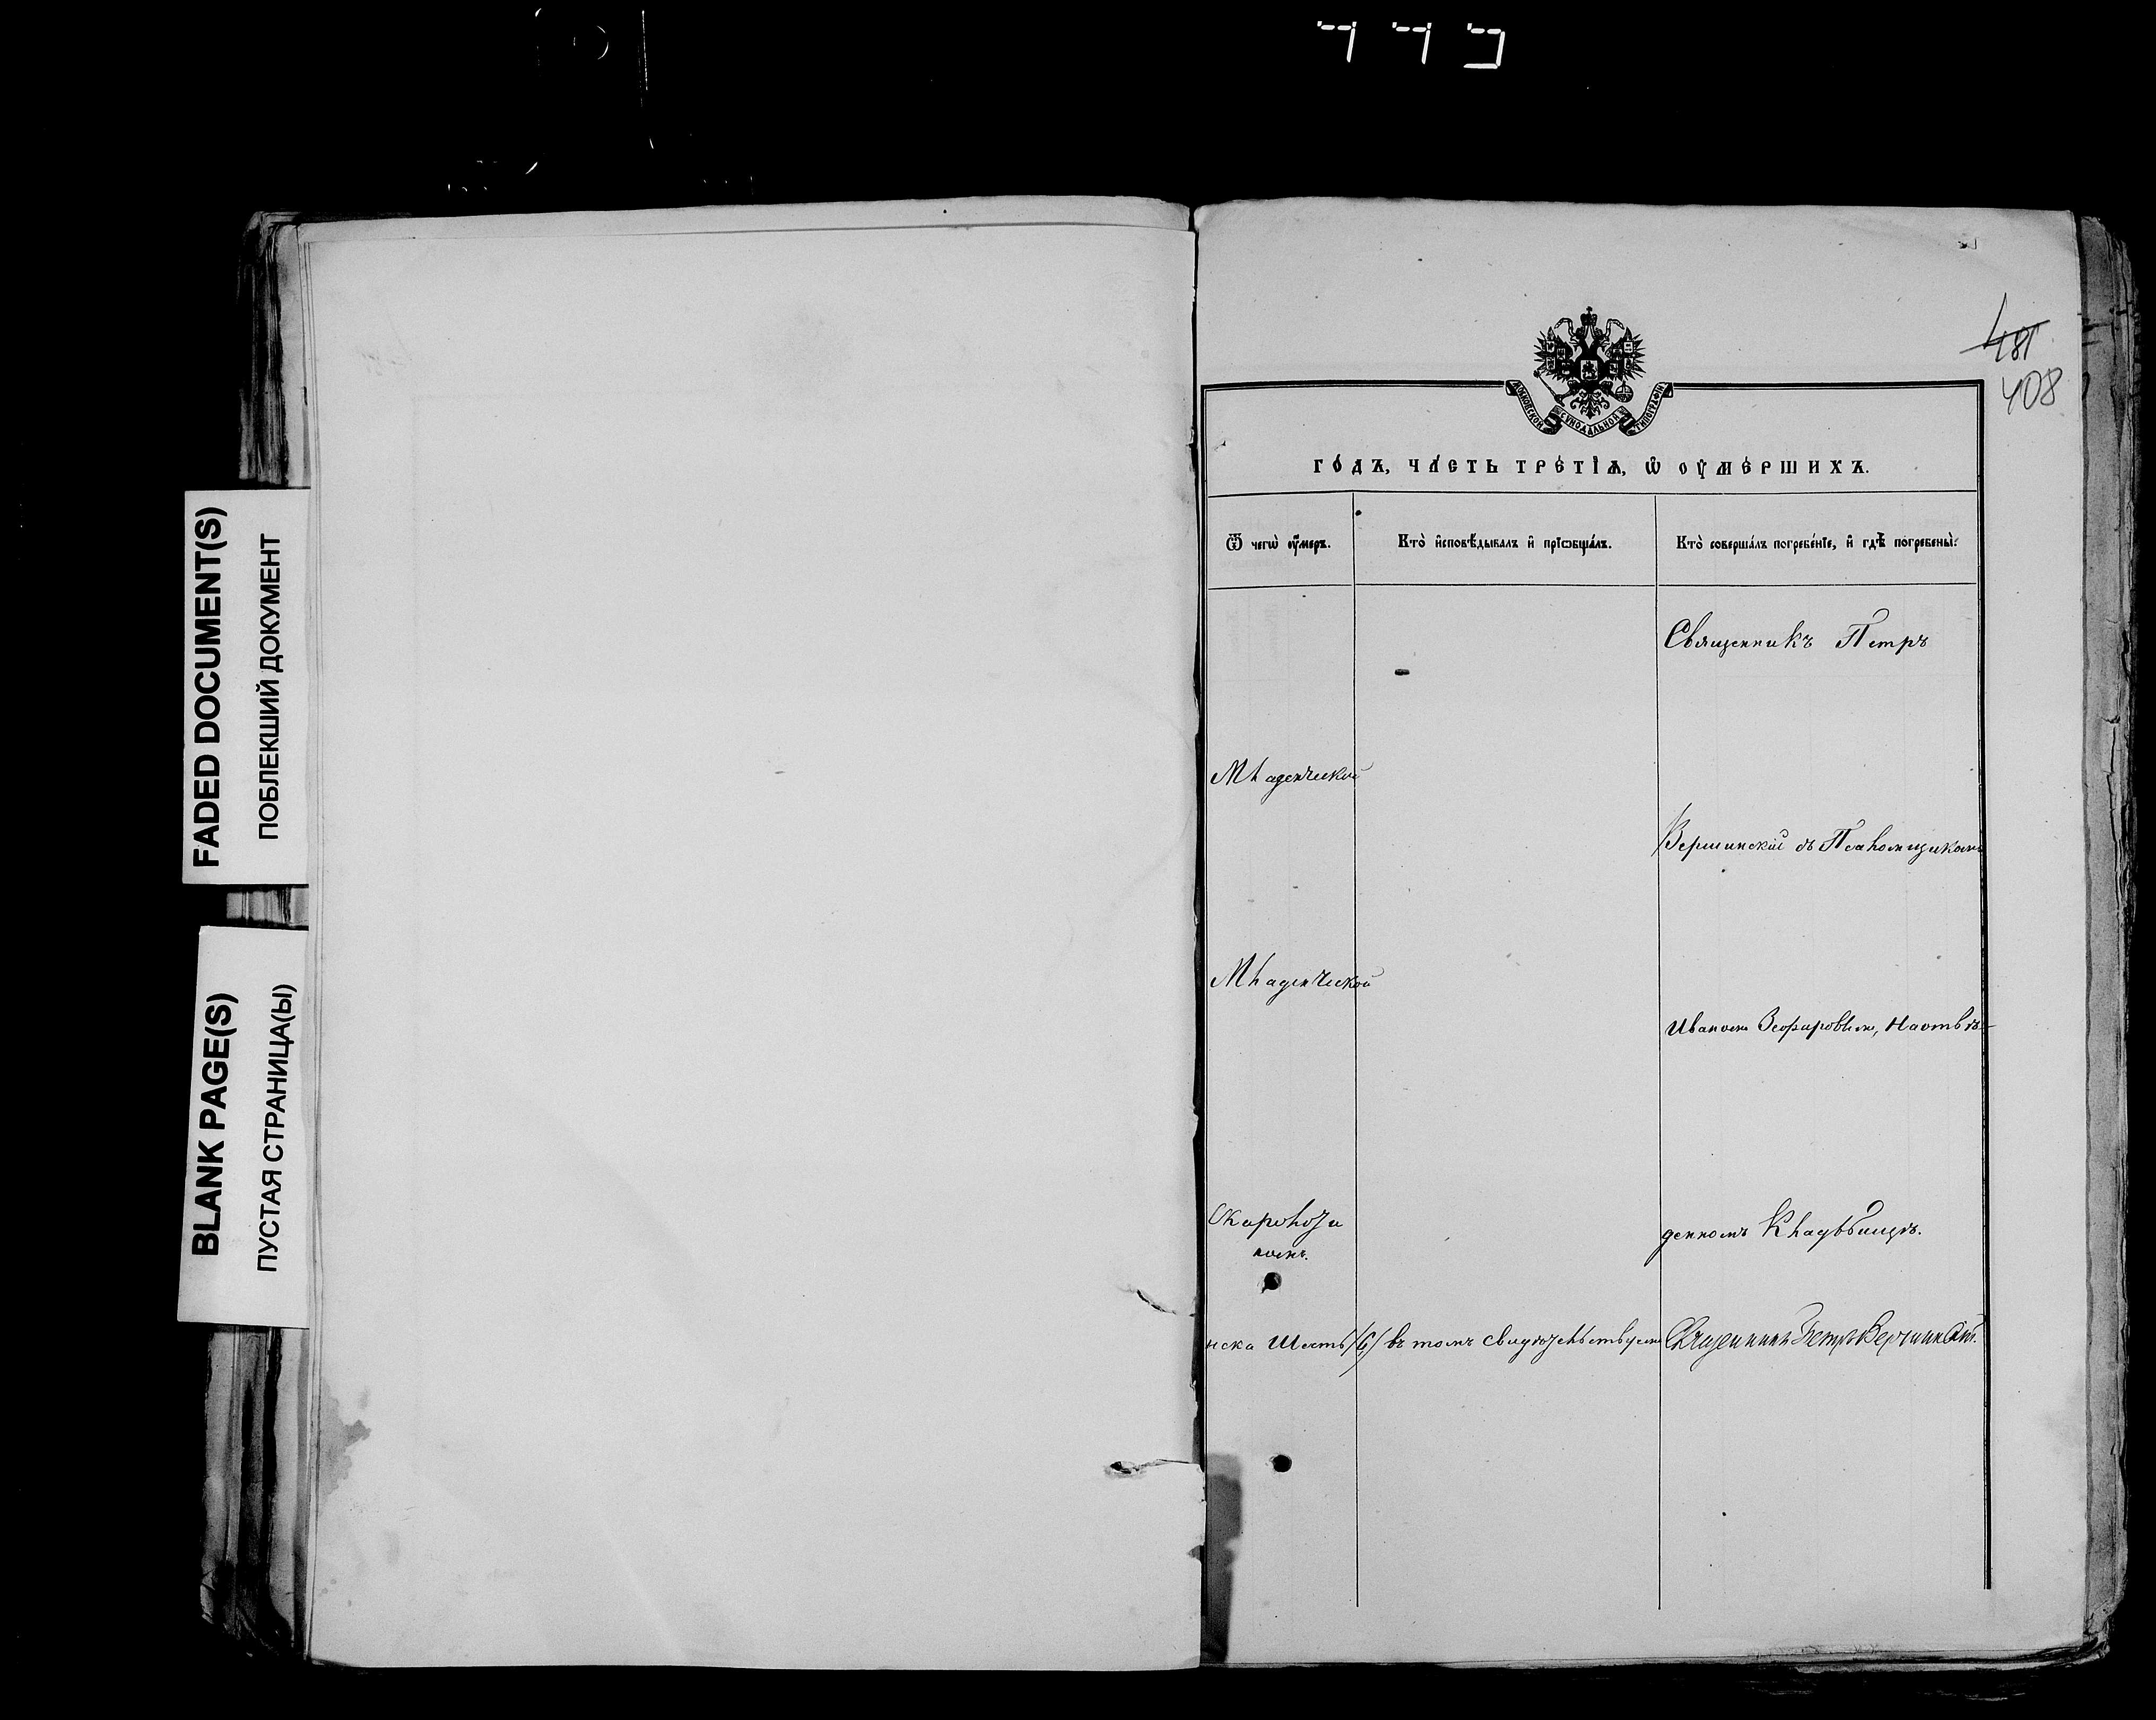 FADED DOCUMENT(S)
ПОБЛЕКШИЙ ДОКУМЕНТ
BLANK PAGE(S)
ПУСТАЯ СТРАНИЦА(Ы)
481
408
МОСКОВСКОЙ СѴНОДАЛЬНОЙ ТИПОГРАФІИ
ГО́ДЪ, ЧА́СТЬ ТРЕ́ТІѦ, Ѡ҆ ОУ҆МЕ́РШИХЪ.
Ѿ чегѡ̀ оу҆́меръ.
Кто̀ и҆сповѣ́дывалъ и҆ прїѡбща́лъ.
Кто̀ соверша́лъ погребе́нїе, и҆ гдѣ̀ погребены̀.
Священникъ Петръ
Младенческой
Вершинскій съ Псаломщикомъ
Младенческой
Иваномъ Зефировымъ, На отве-
Скарлоти
номъ.
денномъ Кладбищѣ.
иска Шесть /6/ въ томъ свидѣтельствуемъ Священникъ Петръ Вершинскій.